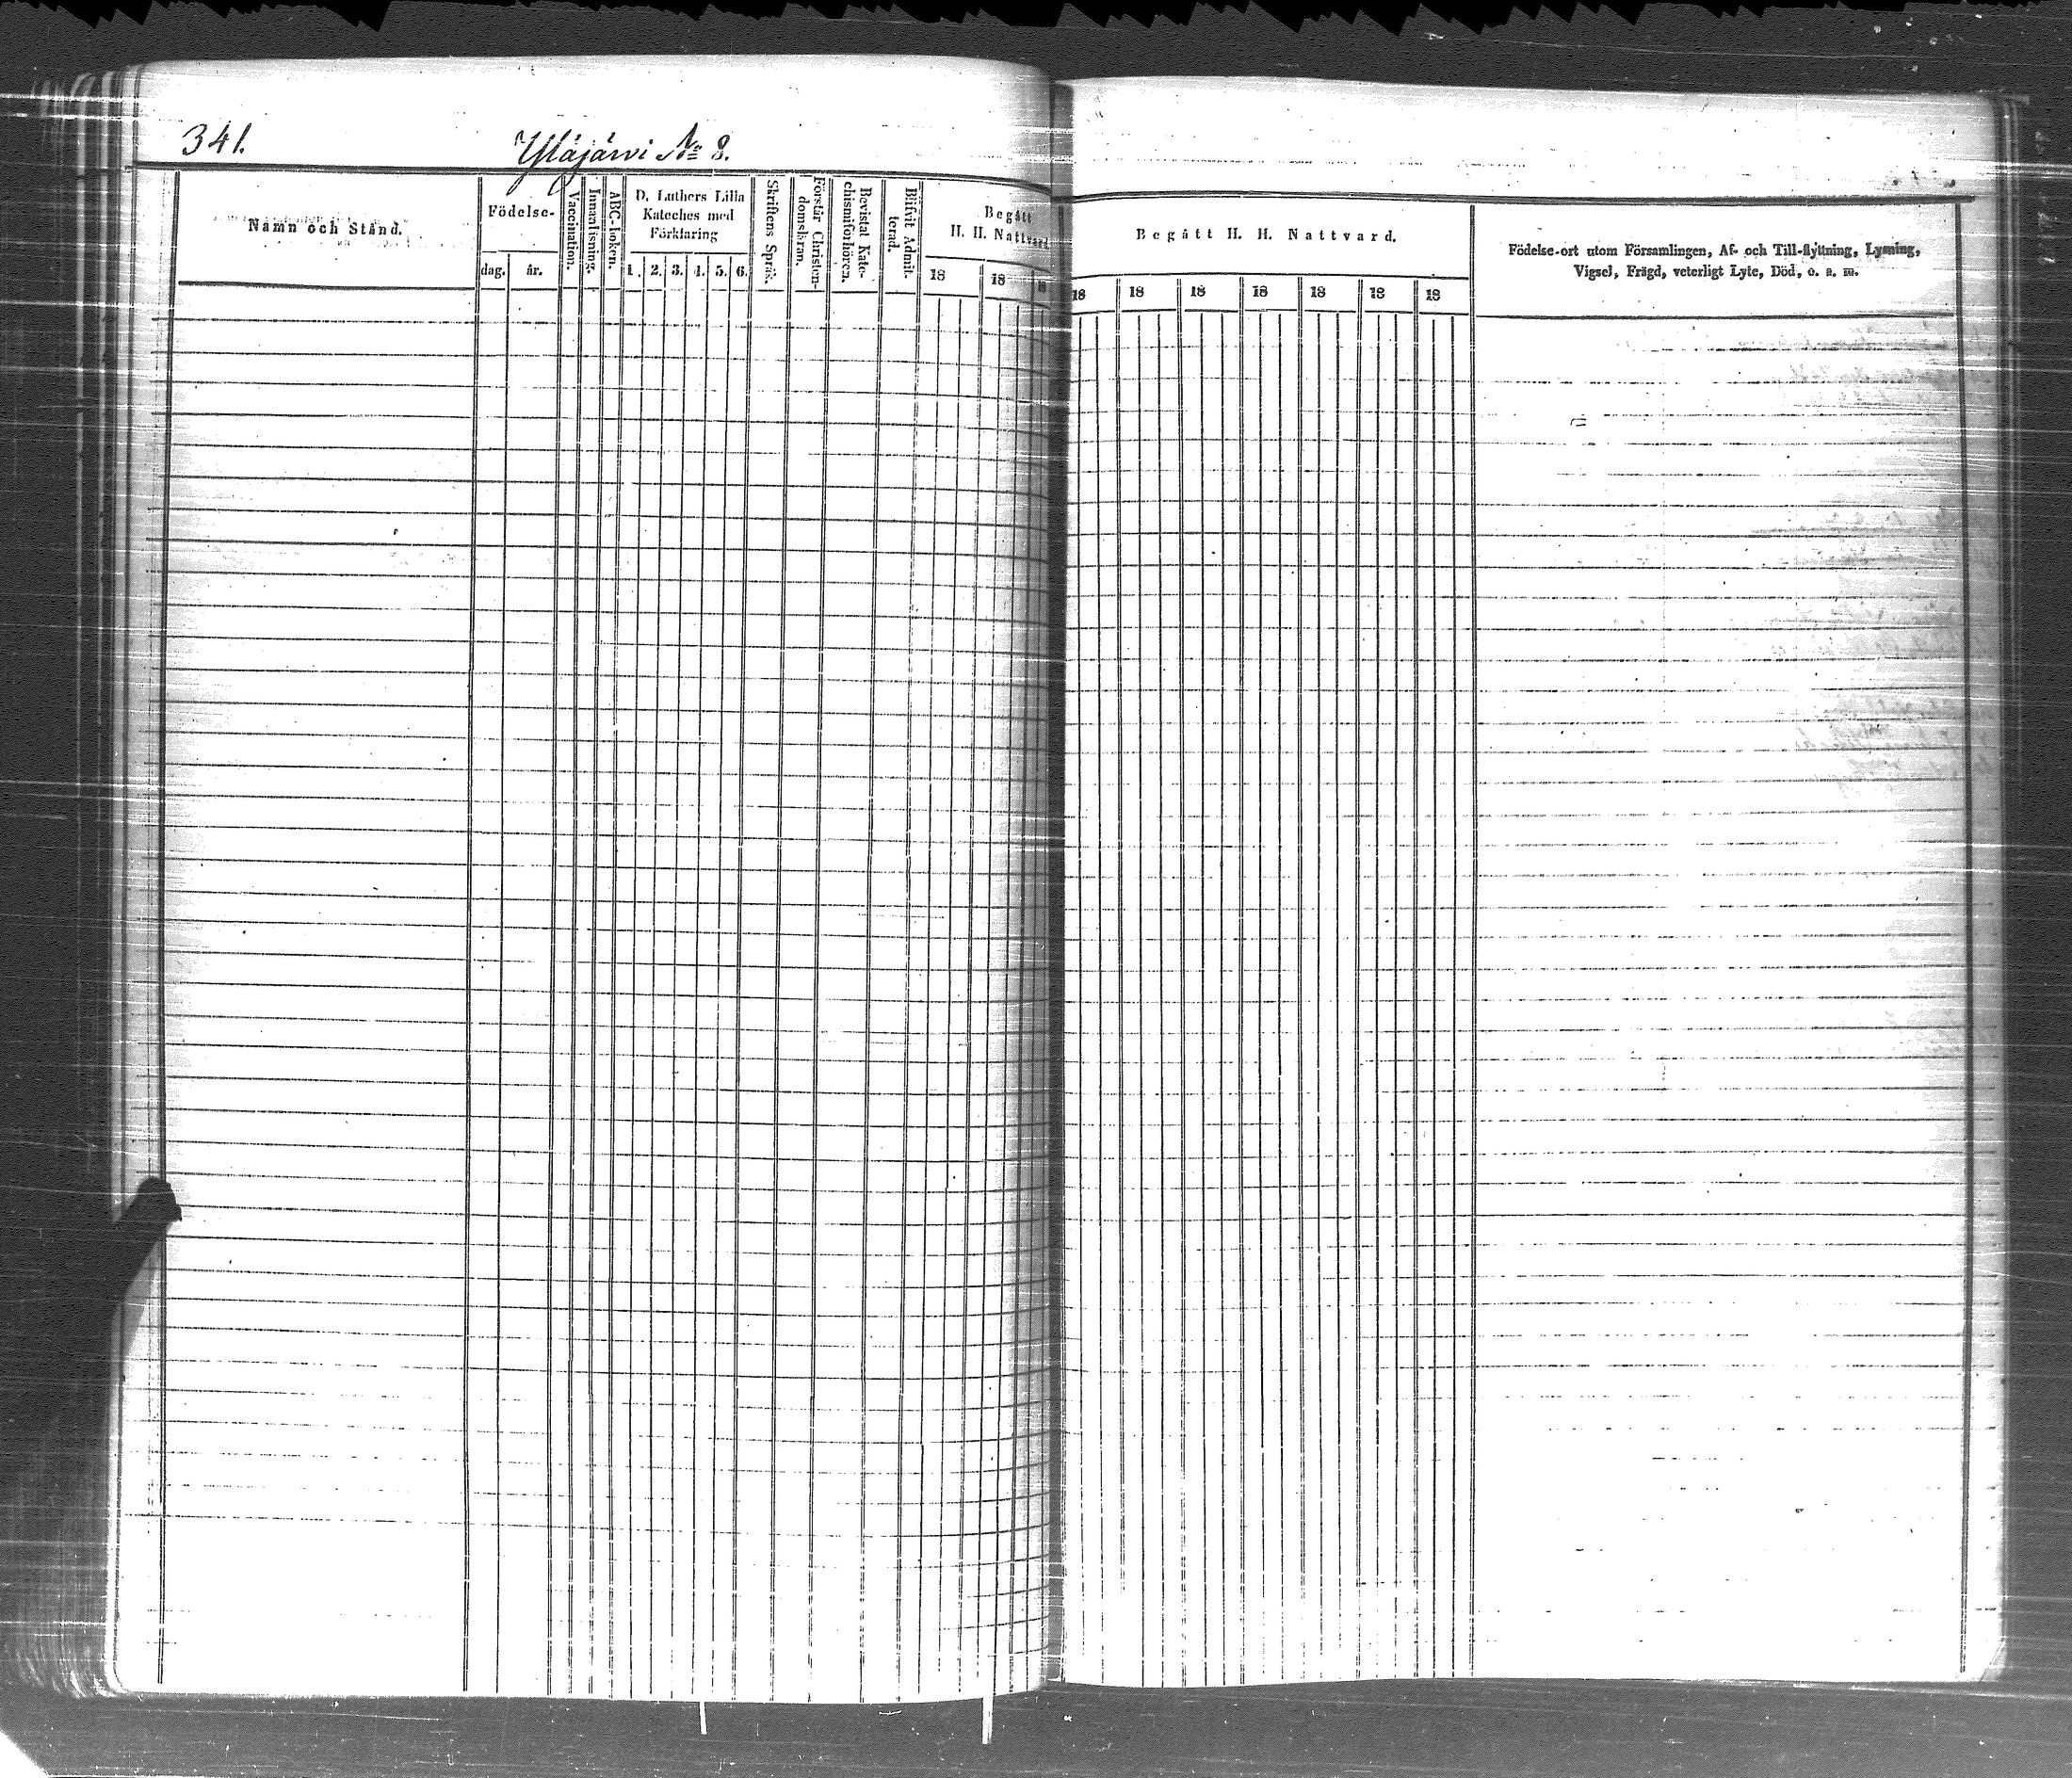 341.
Yläjärvi No 8.
Namn och Stånd.
Födelse-
dag. år.
Vaccination.
Innanläsning.
ABC-boken.
D. Luthers Lilla
Kateches med
Förklaring
1. 2. 3. 4. 5. 6.
Skriftens Språk.
Förstår Christen-
domsläran.
Bevistat Kate-
chismiförhören.
Blifvit Admit-
terad.
Begått
H. H. Nattvard.
18 18 18
Begått H. H. Nattvard.
18 18 18 18 18 18 18
Födelse-ort utom Församlingen, Af- och Till-flyttning, Lysning,
Vigsel, Frägd, veterligt Lyte, Död, o. s. m.